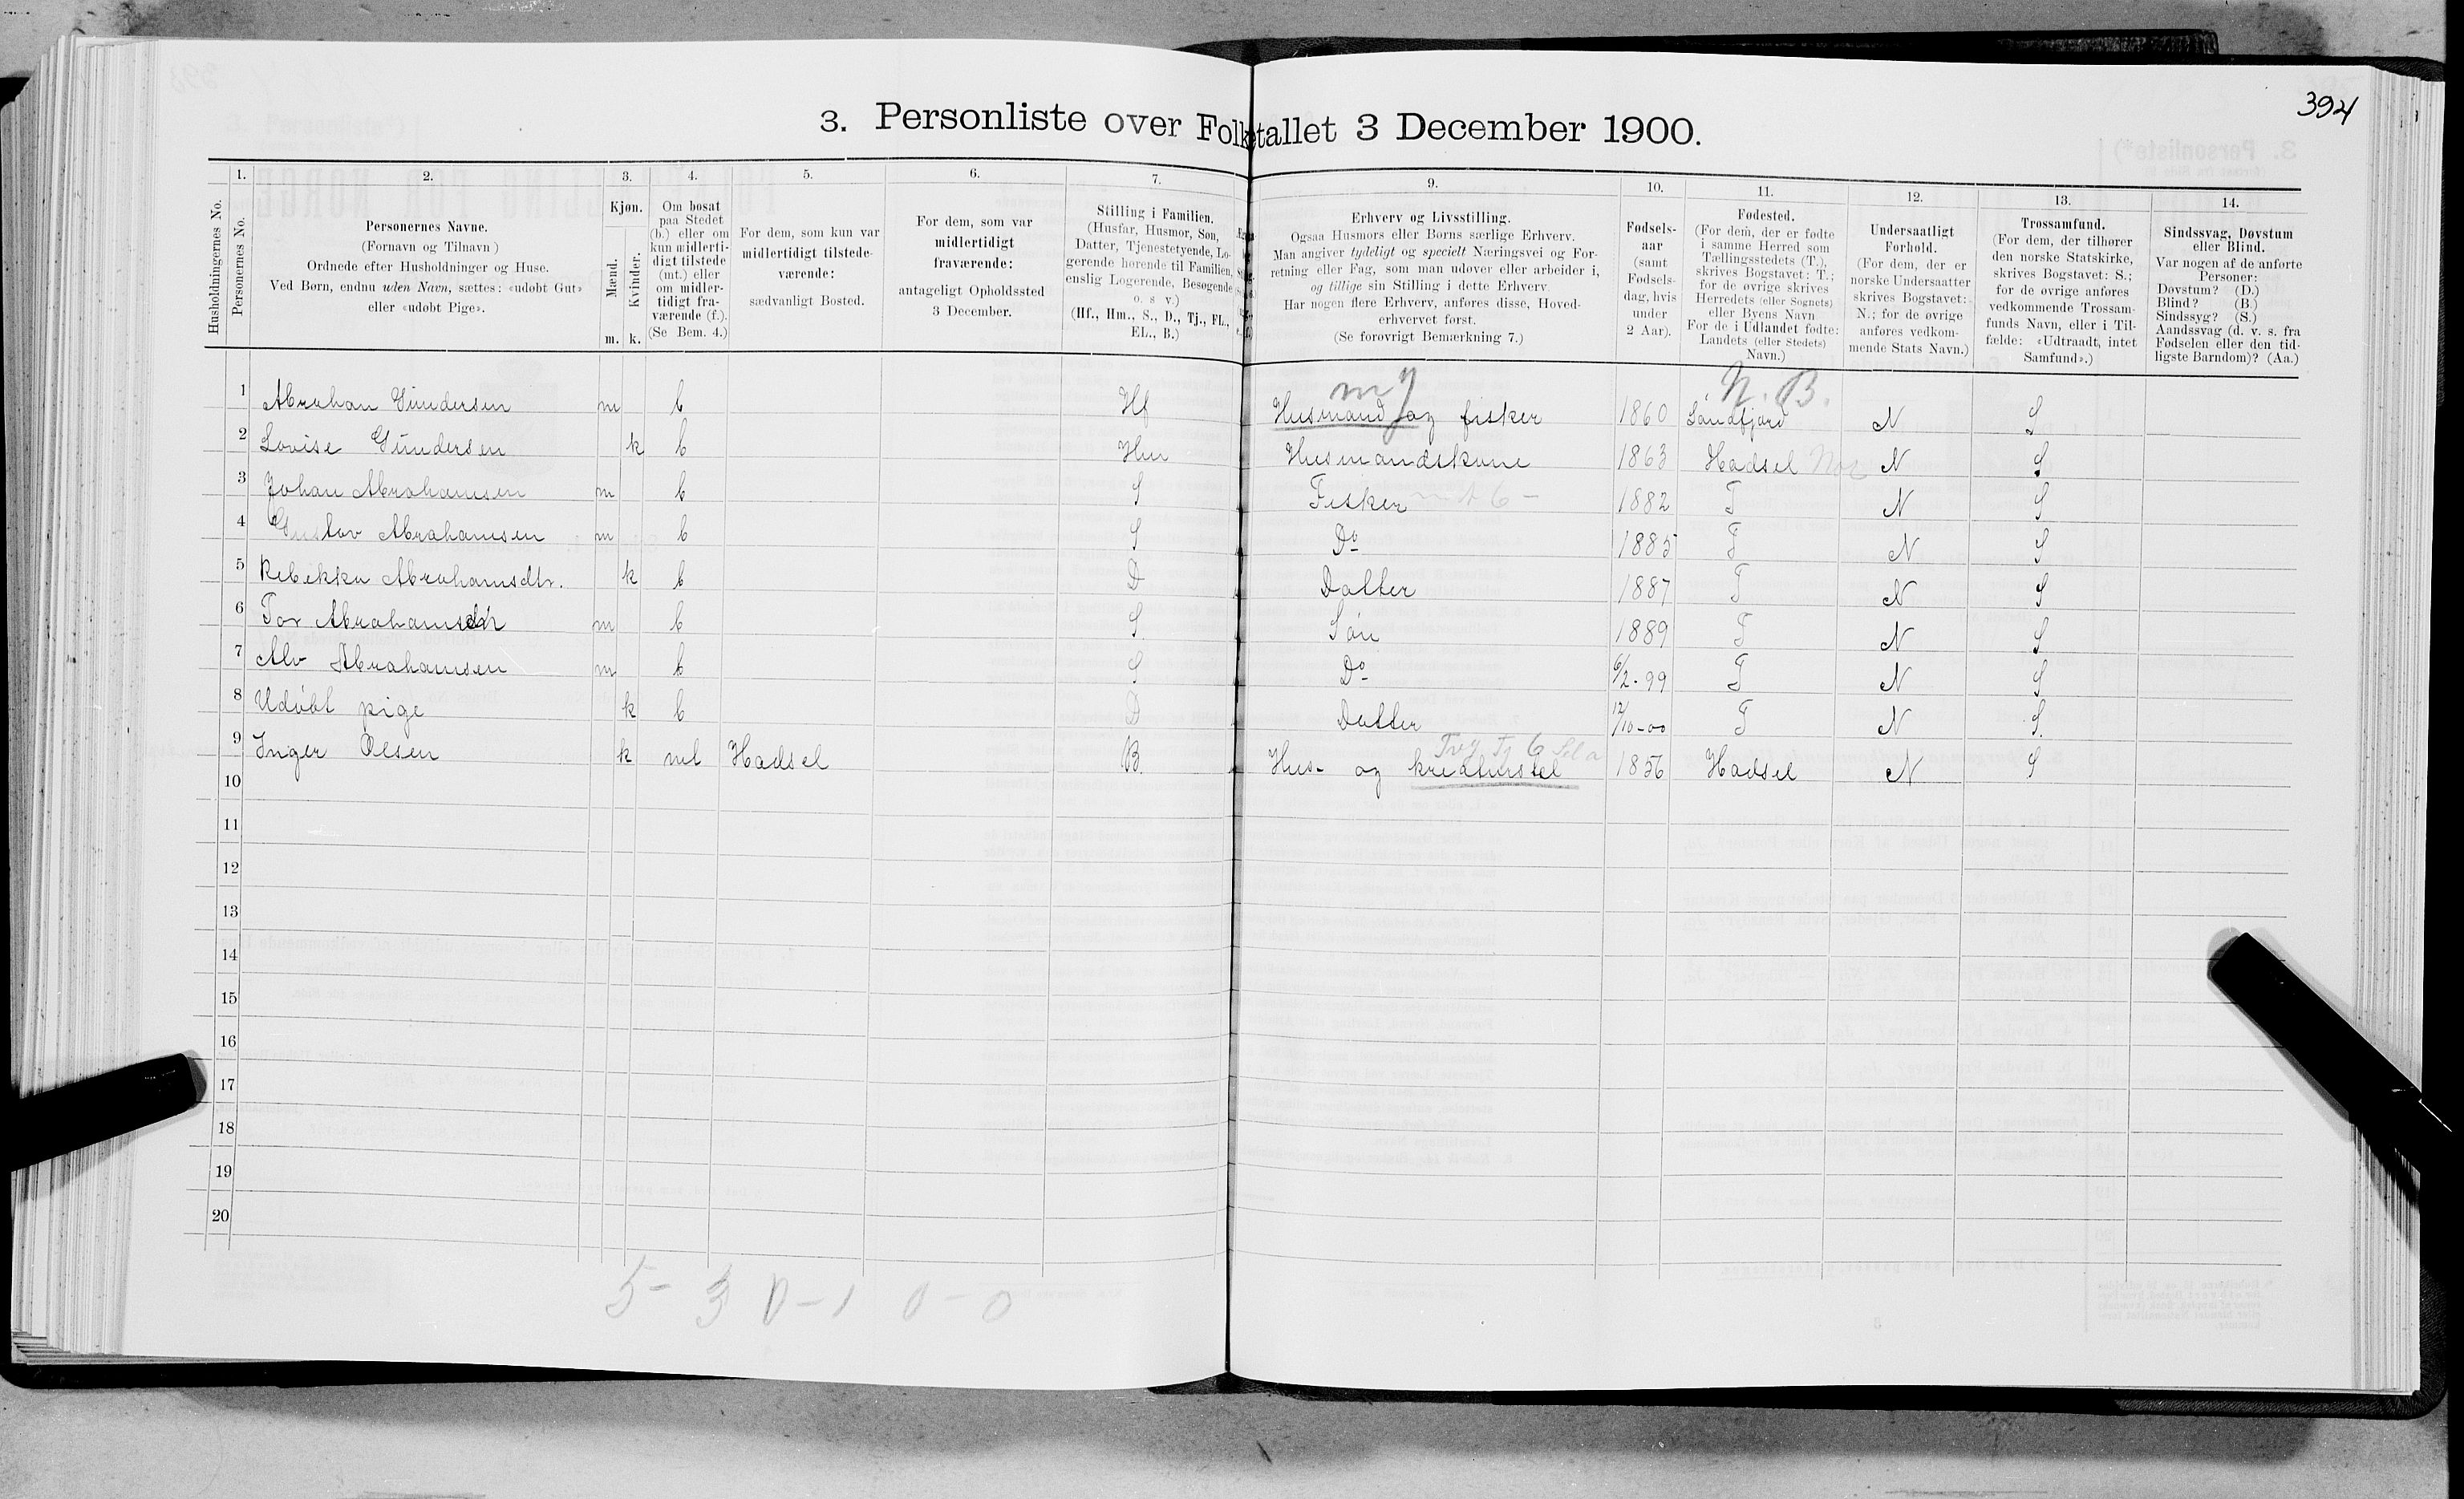 394
3. Personliste over Folketallet 3 December 1900.
1. 2. 3. 4. 5. 6. 7. 9. 10. 11. 12. 13. 14.
Husholdningernes No.
Personernes No.
Personernes Navne.
(Fornavn og Tilnavn)
Ordnede efter Husholdninger og Huse.
Ved Børn, endnu uden Navn, sættes: «udøbt Gut»
eller «udøbt Pige».
Kjøn.
Mænd.
Kvinder.
m. k.
Om bosat
paa Stedet
(b.) eller om
kun midlerti-
digt tilstede
(mt.) eller
om midler-
tidigt fra-
værende (f.).
(Se Bem. 4.)
For dem, som kun var
midlertidigt tilstede-
værende:
sædvanligt Bosted.
For dem, som var
midlertidigt
fraværende:
antageligt Opholdssted
3 December.
Stilling i Familien.
(Husfar, Husmor, Søn,
Datter, Tjenestetyende, Lo-
gerende hørende til Familien,
enslig Logerende, Besøgende
o. s v.)
(Hf., Hm., S., D., Tj., FL.,
EL., B.)
Erhverv og Livsstilling.
Ogsaa Husmors eller Børns særlige Erhverv.
Man angiver tydeligt og specielt Næringsvei og For-
retning eller Fag, som man udøver eller arbeider i,
og tillige sin Stilling i dette Erhverv.
Har nogen flere Erhverv, anføres disse, Hoved-
erhvervet først.
(Se forøvrigt Bemærkning 7.)
Fødsels-
aar
(samt
Fødsels-
dag, hvis
under
2 Aar).
Fødested.
(For dem, der er fødte
i samme Herred som
Tællingsstedets (T.),
skrives Bogstavet: T.;
for de øvrige skrives
Herredets (eller Sognets)
eller Byens Navn
For de i Udlandet fødte:
Landets (eller Stedets)
Navn.)
Undersaatligt
Forhold.
(For dem, der er
norske Undersaatter
skrives Bogstavet:
N.; for de øvrige
anføres vedkom-
mende Stats Navn.)
Trossamfund.
(For dem, der tilhører
den norske Statskirke,
skrives Bogstavet: S.;
for de øvrige anføres
vedkommende Trossam-
funds Navn, eller i Til-
fælde: «Udtraadt, intet
Samfund».)
Sindssvag, Døvstum
eller Blind.
Var nogen af de anførte
Personer:
Døvstum? (D.)
Blind? (B.)
Sindssyg? (S.)
Aandssvag (d. v. s. fra
Fødselen eller den tid-
ligste Barndom)? (Aa.)
N. B.
1 Abrahan Gundersen m b Hf Husmand og fisker 1860 Søndfjord N S
2 Lovise Gundersen k b Hm Husmandskone 1863 Hadsel N S
3 Johan Abrahamsen m b S Fisker 1882 T N S
4 Gustav Abrahamsen m b S Do 1885 T N S
5 Rebekka Abrahamsdtr. k b D Datter 1887 T N S
6 Tor Abrahamsdtr m b S Søn 1889 T N S
7 Alv Abrahamsen m b S Do 6/2-99 T N S
8 Udøbt pige k b D Datter 12/10-00 T N S.
9 Inger Olsen k mt Hadsel B. Hus- og kreaturstel 1856 Hadsel N S
10
11
12
13
14
15
16
17
18
19
20
5 - 3 0 - 1 0 - 0